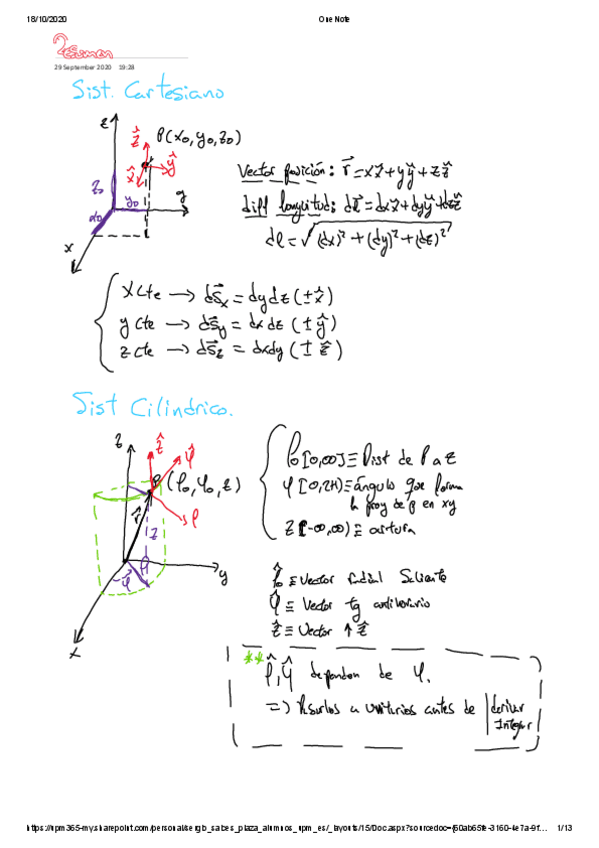 18/10/2020 OneNote
Resumen
29 September 2020 19:28
Sist. Cartesiano
z
ẑ P(x₀, y₀, z₀)
x̂ ŷ
z₀
y₀ y
x₀
x
Vector posición: r⃗ = xx̂ + yŷ + zẑ
diff longitud: dl⃗ = dxx̂ + dyŷ + dzẑ
dl = √((dx)² + (dy)² + (dz)²)
x cte → ds⃗ₓ = dydz (± x̂)
y cte → ds⃗y = dx dz (± ŷ)
z cte → ds⃗z = dxdy (± ẑ)
Sist Cilindrico.
z ẑ φ̂
P (ρ₀, φ₀, z)
r⃗ ρ̂
z
φ ρ
y
x
ρ [0,∞) ≡ Dist de P a z
φ [0,2π) ≡ ángulo que forma
la proy de P en xy
z (-∞,∞) ≡ altura
ρ̂ ≡ Vector radial Saliente
φ̂ ≡ Vector tg antihorario
ẑ ≡ Vector ↑ ẑ
** ρ̂, φ̂ dependen de φ.
=> Pasarlos a unitarios antes de | derivar
Integrar
https://upm365-my.sharepoint.com/personal/sergib_sabes_plaza_alumnos_upm_es/_layouts/15/Doc.aspx?sourcedoc={60ab65fe-3160-4e7a-9f... 1/13